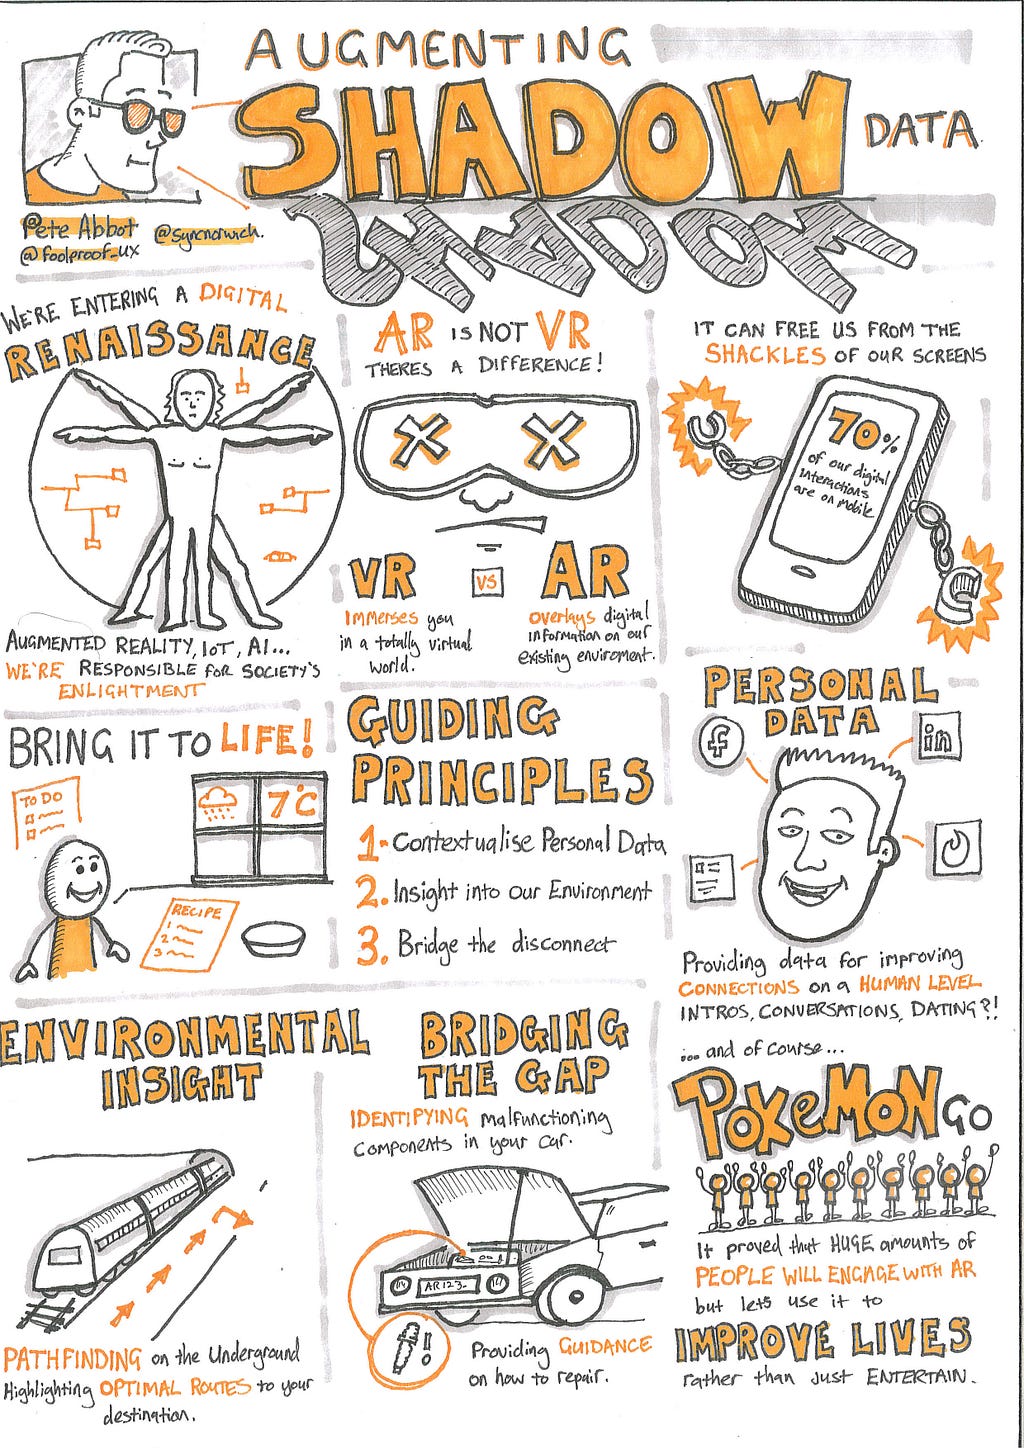 AUGMENTING
SHADOW
DATA
SHADOW
@Pete Abbot
@syncnorwich.
@foolproof_ux
WE'RE ENTERING A DIGITAL
RENAISSANCE
AUGMENTED REALITY, IoT, AI...
WE'RE RESPONSIBLE FOR SOCIETY'S
ENLIGHTMENT
AR IS NOT VR
THERES A DIFFERENCE!
VR
VS
AR
IMMERSES you
in a totally virtual
world.
OVERLAYS digital
information on our
existing enviroment.
IT CAN FREE US FROM THE
SHACKLES OF OUR SCREENS
70%
of our digital
interactions
are on mobile
BRING IT TO LIFE!
TO DO
7°C
RECIPE
1
2
3
GUIDING
PRINCIPLES
1. Contextualise Personal Data
2. Insight into our Environment
3. Bridge the disconnect
PERSONAL
DATA
f
in
Providing data for improving
CONNECTIONS on a HUMAN LEVEL
INTROS, CONVERSATIONS, DATING?!
ENVIRONMENTAL
INSIGHT
PATHFINDING on the Underground
Highlighting OPTIMAL ROUTES to your
destination.
BRIDGING
THE GAP
IDENTIFYING malfunctioning
components in your car.
AR123
!
Providing GUIDANCE
on how to repair.
... and of course...
POKEMON GO
It proved that HUGE amounts of
PEOPLE WILL ENGAGE WITH AR
but lets use it to
IMPROVE LIVES
rather than just ENTERTAIN.